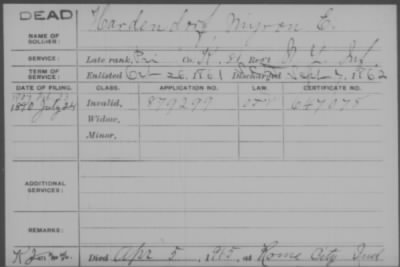 DEAD
NAME OF SOLDIER: Hardendorf Myron E.
SERVICE: Late rank, Pri Co. K. Regt N.Y. Inf
TERM OF SERVICE: Enlisted Oct 26, 1861 Discharged Sept 7, 1862
DATE OF FILING. CLASS. APPLICATION NO. LAW. CERTIFICATE NO.
1890 July 24 Invalid, 879299 647078
Widow,
Minor,
ADDITIONAL SERVICES:
REMARKS:
Died Apr 5, 1915, at Rome City Ind.